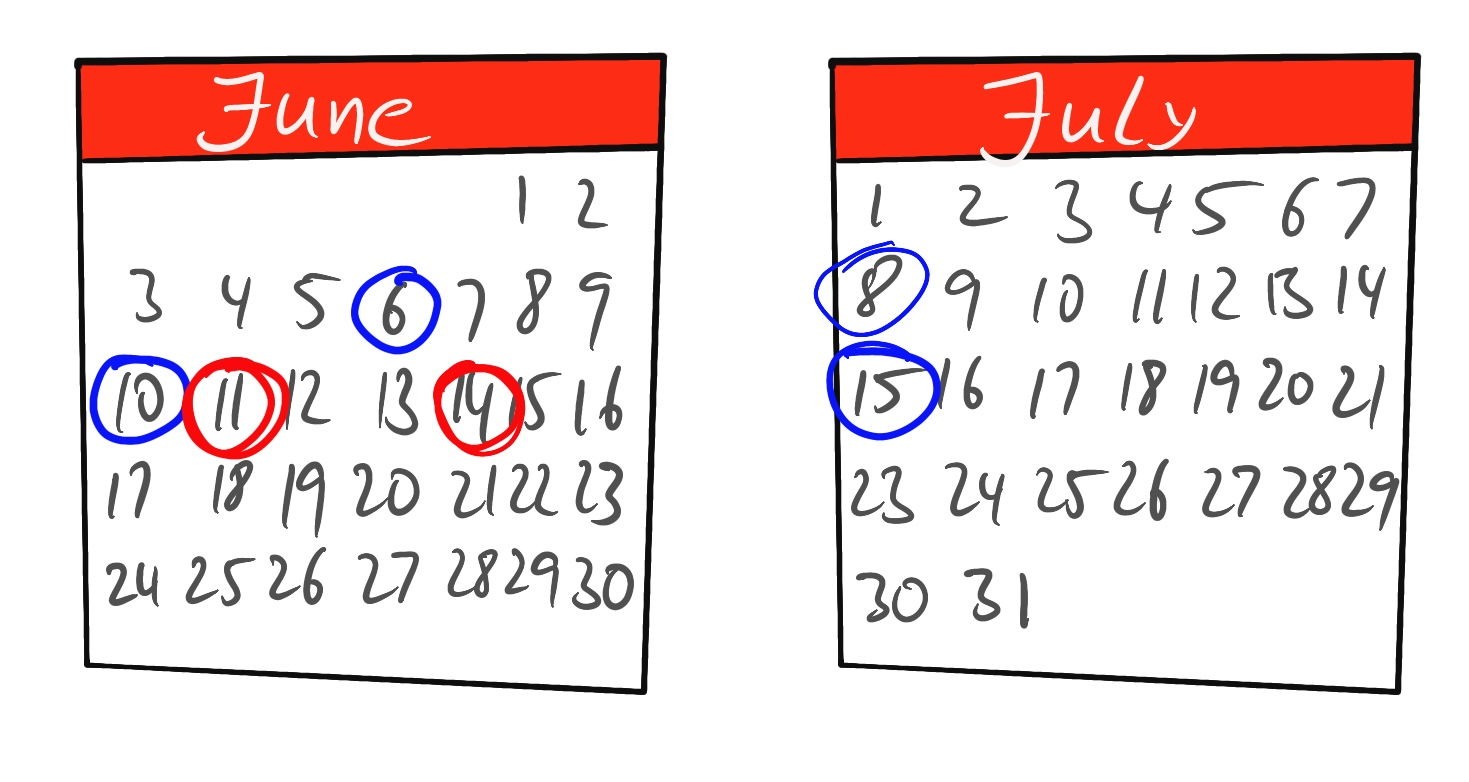 June
1 2
3 4 5 6 7 8 9
10 11 12 13 14 15 16
17 18 19 20 21 22 23
24 25 26 27 28 29 30
July
1 2 3 4 5 6 7
8 9 10 11 12 13 14
15 16 17 18 19 20 21
23 24 25 26 27 28 29
30 31